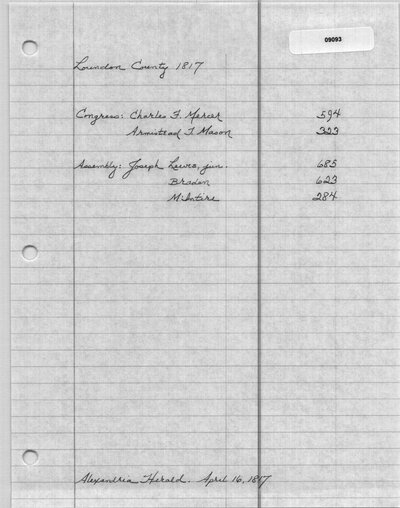 09093
Loundon County 1817
Congress: Charles F. Mercer 594
Armistead T. Mason 323
Assembly: Joseph Lewis, jun. 685
Bradon 623
McIntire 284
Alexandria Herald. April 16, 1817